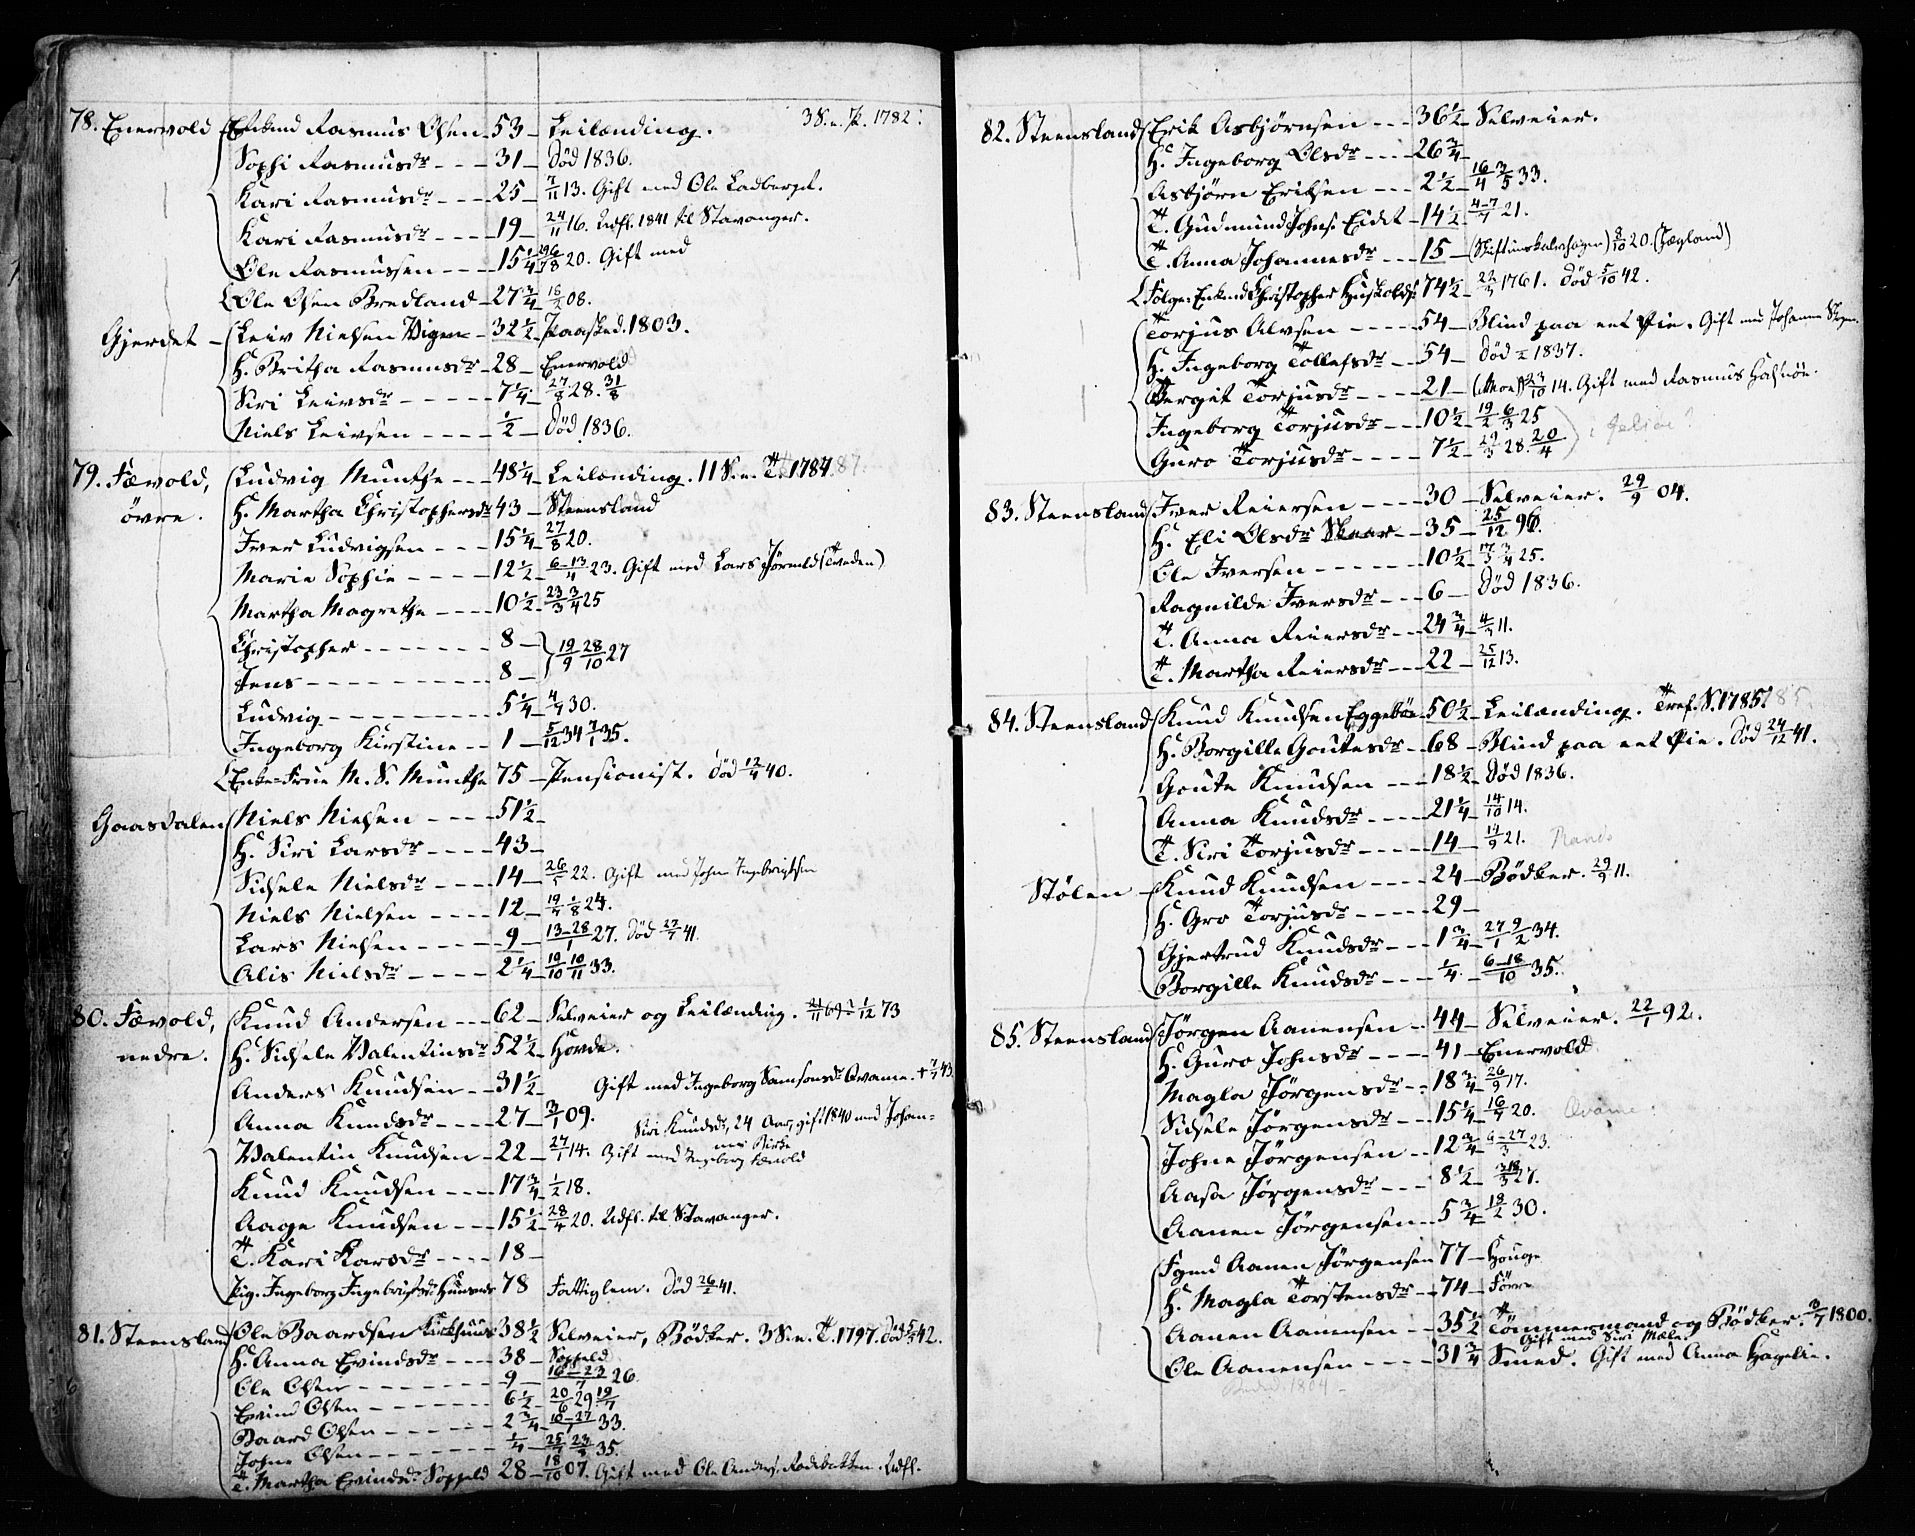 78. Enervold Enkmd Rasmus Olsen 53 Leilænding. 3 S. n. P. 1782.
Sophi Rasmusdr 31 Død 1836.
Kari Rasmusdr 25 7/11 13. Gift med Ole Ladberget.
Kari Rasmusdr 19 24/11 16. Udfl. 1841 til Stavanger.
Ole Rasmussen 15 1/4 20. Gift med
Ole Olsen Bredland 27 3/4 18/2 08.
Gjerdet Leiv Nielsen Vigen 32 1/2 Paasked. 1803.
H. Britha Rasmusdr 28 Enervold
Siri Leivsdr 7 1/4 27/8 28. 31/8
Niels Leivsen 1/2 Død 1836.
79. Fævold, Ludvig Munthe 48 1/4 Leilænding. 11 S. n. T. 1787. 87.
øvre. H. Martha Christophersdr 43 Steensland
Iver Ludvigsen 15 1/4 27/8 20.
Marie Sophie 12 1/2 6-13/4 23. Gift med Lars (Tveden)
Martha Magrethe 10 1/2 23/3 3/4 25
Christopher 8
Jens 8 19/9 28/10 27
Ludvig 5 1/4 4/7 30.
Ingeborg Kirstine 1 5/12 34 7/1 35.
Enke-Frue M. S. Munthe 75 Pensionist. Død 12/4 40.
Gaasdalen Niels Nielsen 51 1/2
H. Siri Larsdr 43
Sidsele Nielsdr 14 22. Gift med John Ingebrigtsen
Niels Nielsen 12 24.
Lars Nielsen 9 13-28/1 27. Død 27/7 41.
Alis Nielsdr 2 1/4 19/10 10/11 33.
80. Fævold, Knud Andersen 62 Selveier og Leilænding. 73
nedre. H. Sidsele Valentinsdr 52 1/2 Hovde.
Anders Knudsen 31 1/2 Gift med Ingeborg Samsonsdr Qvame. + 7/7 43.
Anna Knudsdr 27 3/1 09. Siri Knudsdr, 24 Aar, gift 1840 med Johan-
Valentin Knudsen 22 27/1 14. Gift med Ingeborg Fævold
Knud Knudsen 17 3/4 1/2 18.
Aage Knudsen 15 1/2 28/4 20. Udfl. til Stavanger.
T. Kari Larsdr 18
Pig. Ingeborg Ingebrigtsdr 78 Fattiglem. Død 26/2 41.
81. Steensland Ole Baardsen Kirkhuus 38 1/2 Selveier, Bødker. 3 S. n. T. 1797. Død 42.
H. Anna Evindsdr 38 Sopheld
Ole Olsen 9 16-23/7 26.
Evind Olsen 6 1/2 20/6 29 19/7
Baard Olsen 2 3/4 10-27/1 33.
Johne Olsen 1/4 35.
T. Martha Evindsdr Sopheld 28 18/10 07. Gift med Ole Anders. Rodebakken. Udfl.
82. Steensland Erik Asbjørnsen 36 1/2 Selveier.
H. Ingeborg Olsdr 26 3/4
Asbjørn Eriksen 2 1/2 16/4 3/5 33.
T. Gudmund Johns. Eidet 14 1/2 4-7/7 21.
T. Anna Johannesdr 15 8/10 20. (Hægland)
Følge: Enkmd Christopher 74 1/2 1761. Død 5/10 42.
Torjus Alvsen 54 Blind paa eet Øie. Gift med Johanna
H. Ingeborg Tollefsdr 54 Død 1837.
Berget Torjusdr 21 (Moe) 23/10 14. Gift med Rasmus Halsnøe.
Ingeborg Torjusdr 10 1/2 19/2 6/3 25
Guro Torjusdr 7 1/2 28. 20/4
83. Steensland Iver Reiersen 30 Selveier. 29/9 04.
H. Eli Olsdr Skaar 35 25/12 96.
Ole Iversen 10 1/2 25.
Ragnilde Iversdr 6 Død 1836.
T. Anna Reiersdr 24 3/4 11.
T. Martha Reiersdr 22 25/12 13.
84. Steensland Knud Knudsen Eggebøe 50 1/2 Leilænding. Tref. S. 1785. 85.
H. Borgille Goutesdr 68 Blind paa eet Øie. Død 24/12 41.
Goute Knudsen 18 1/2 Død 1836.
Anna Knudsdr 21 1/4 14/10 14.
T. Siri Torjusdr 14 21.
Stølen Knud Knudsen 24 Bødker. 29/9 11.
H. Gro Torjusdr 29
Gjertrud Knudsdr 1 3/4 27/1 9/2 34.
Borgille Knudsdr 1/4 6-18/10 35.
85. Steensland Jørgen Aanensen 44 Selveier. 22/1 92.
H. Guro Johnsdr 41 Enervold
Magla Jørgensdr 18 3/4 26/9 17.
Sidsele Jørgensdr 15 1/4 16/4 20. Qvame
Johne Jørgensen 12 3/4 6-27/3 23.
Aasa Jørgensdr 8 1/2 27.
Aanen Jørgensen 5 3/4 18/2 30.
Fgmd Aanen Jørgensen 77 Houge
H. Magla Torstensdr 74 Førre
Aanen Aanensen 35 1/2 Tømmermand og Bødker. 3/7 1800.
Gift med Siri Mæle
Ole Aanensen 31 3/4 Smed. Gift med Anna Hagelie.